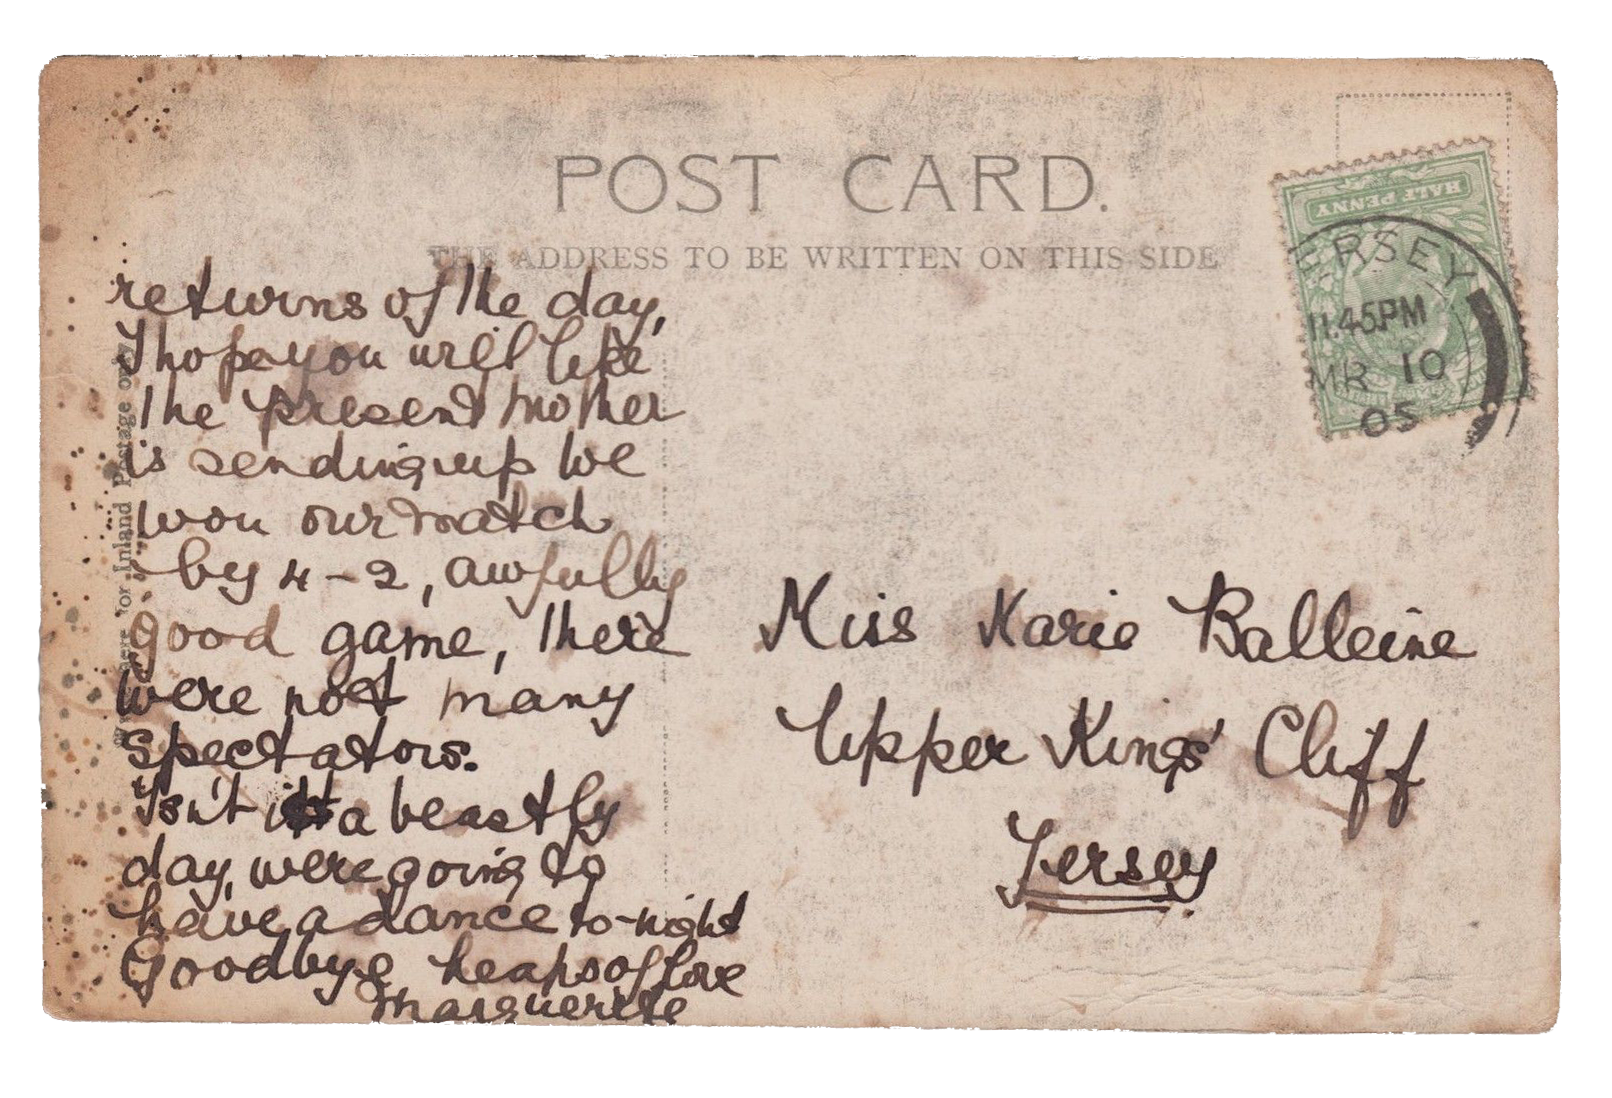 POST CARD.
THE ADDRESS TO BE WRITTEN ON THIS SIDE
HALF PENNY
ERSEY
11.45PM
MR 10
05
for Inland Postage only
returns of the day,
I hope you will like
the present mother
is sending up We
won our match
by 4-2, awfully
good game, there
were not many
spectators.
Isn't it a beastly
day, were going to
have a dance to-night
Goodbye heaps of love
Marguerite
Miss Marie Balleine
Upper Kings' Cliff
Jersey